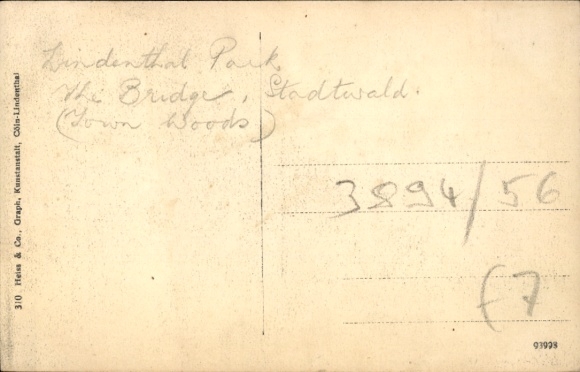 Lindenthal Park.
The Bridge, Stadtwald.
(Town Woods)
3894/56
(7
93998
310 Heiss & Co., Graph, Kunstanstalt, Cöln-Lindenthal